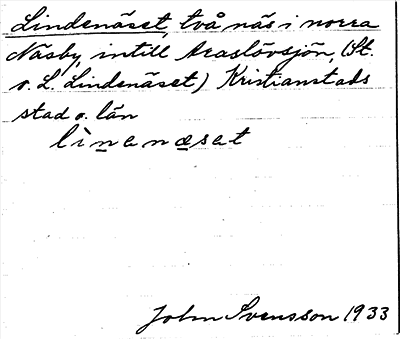 Lindenäset, två näs i norra
Näsby, intill Araslövsjön, (St.
o. L. Lindenäset) Kristianstads
stad o. län
lìnenæset
John Svensson 1933